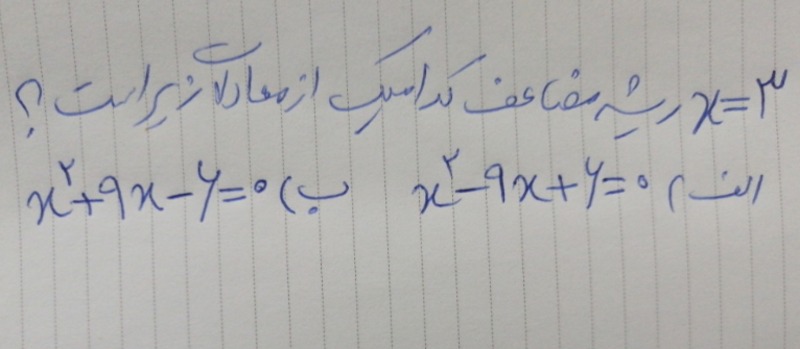 x=۳ ریشه مضاعف کدامیک از معادلات زیر است ؟
الف) x²-۹x+۶=۰ ب) x²+۹x-۶=۰